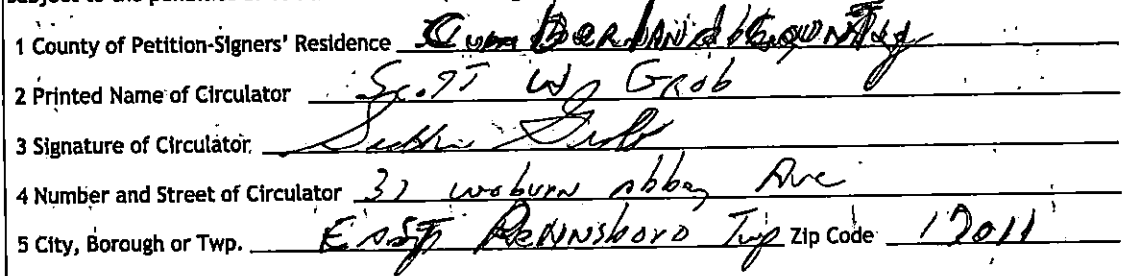 1 County of Petition-Signers' Residence Cumberland County
2 Printed Name of Circulator Scott W Grob
3 Signature of Circulator
4 Number and Street of Circulator 37 Woburn Abbey Ave
5 City, Borough or Twp. East Pennsboro Twp Zip Code 17011